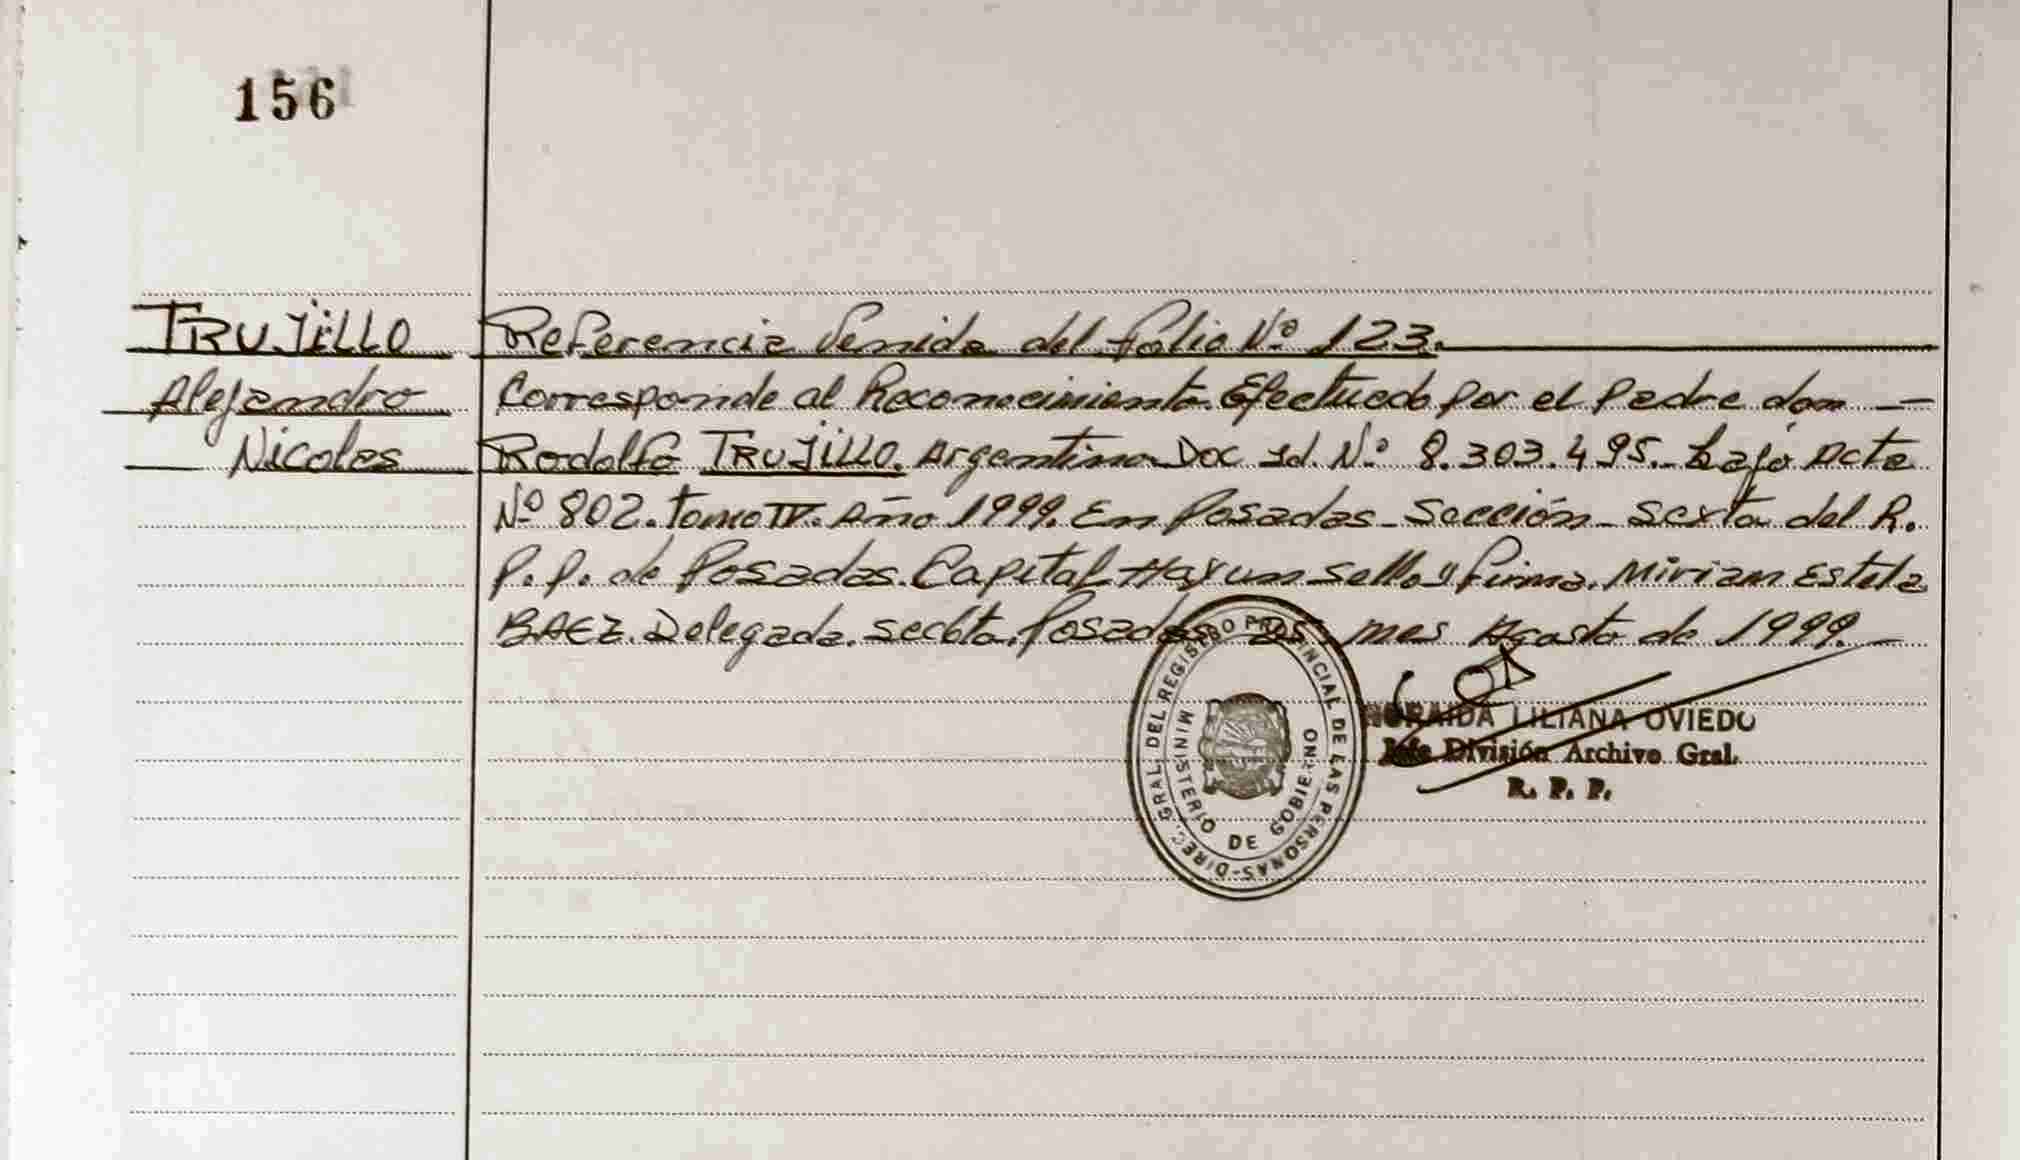 156
TRUJILLO
Alejandro
Nicolas
Referencia Venida del folio Nº 123.
Corresponde al Reconocimiento Efectuado por el Padre don —
Rodolfo TRUJILLO. Argentino Doc Id. Nº 8.303.495. bajo Acta
Nº 802. tomo IV. Año 1999. En Posadas - Sección - Sexta del R.
P.P. de Posadas. Capital Hay un sello y firma. Miriam Estela
BAEZ. Delegada. secta. Posadas mes Agosto de 1999. —
DIREC. GRAL. DEL REGISTRO PROVINCIAL DE LAS PERSONAS-
MINISTERIO DE GOBIERNO
LILIANA OVIEDO
Jefe División Archivo Gral.
R. P. P.